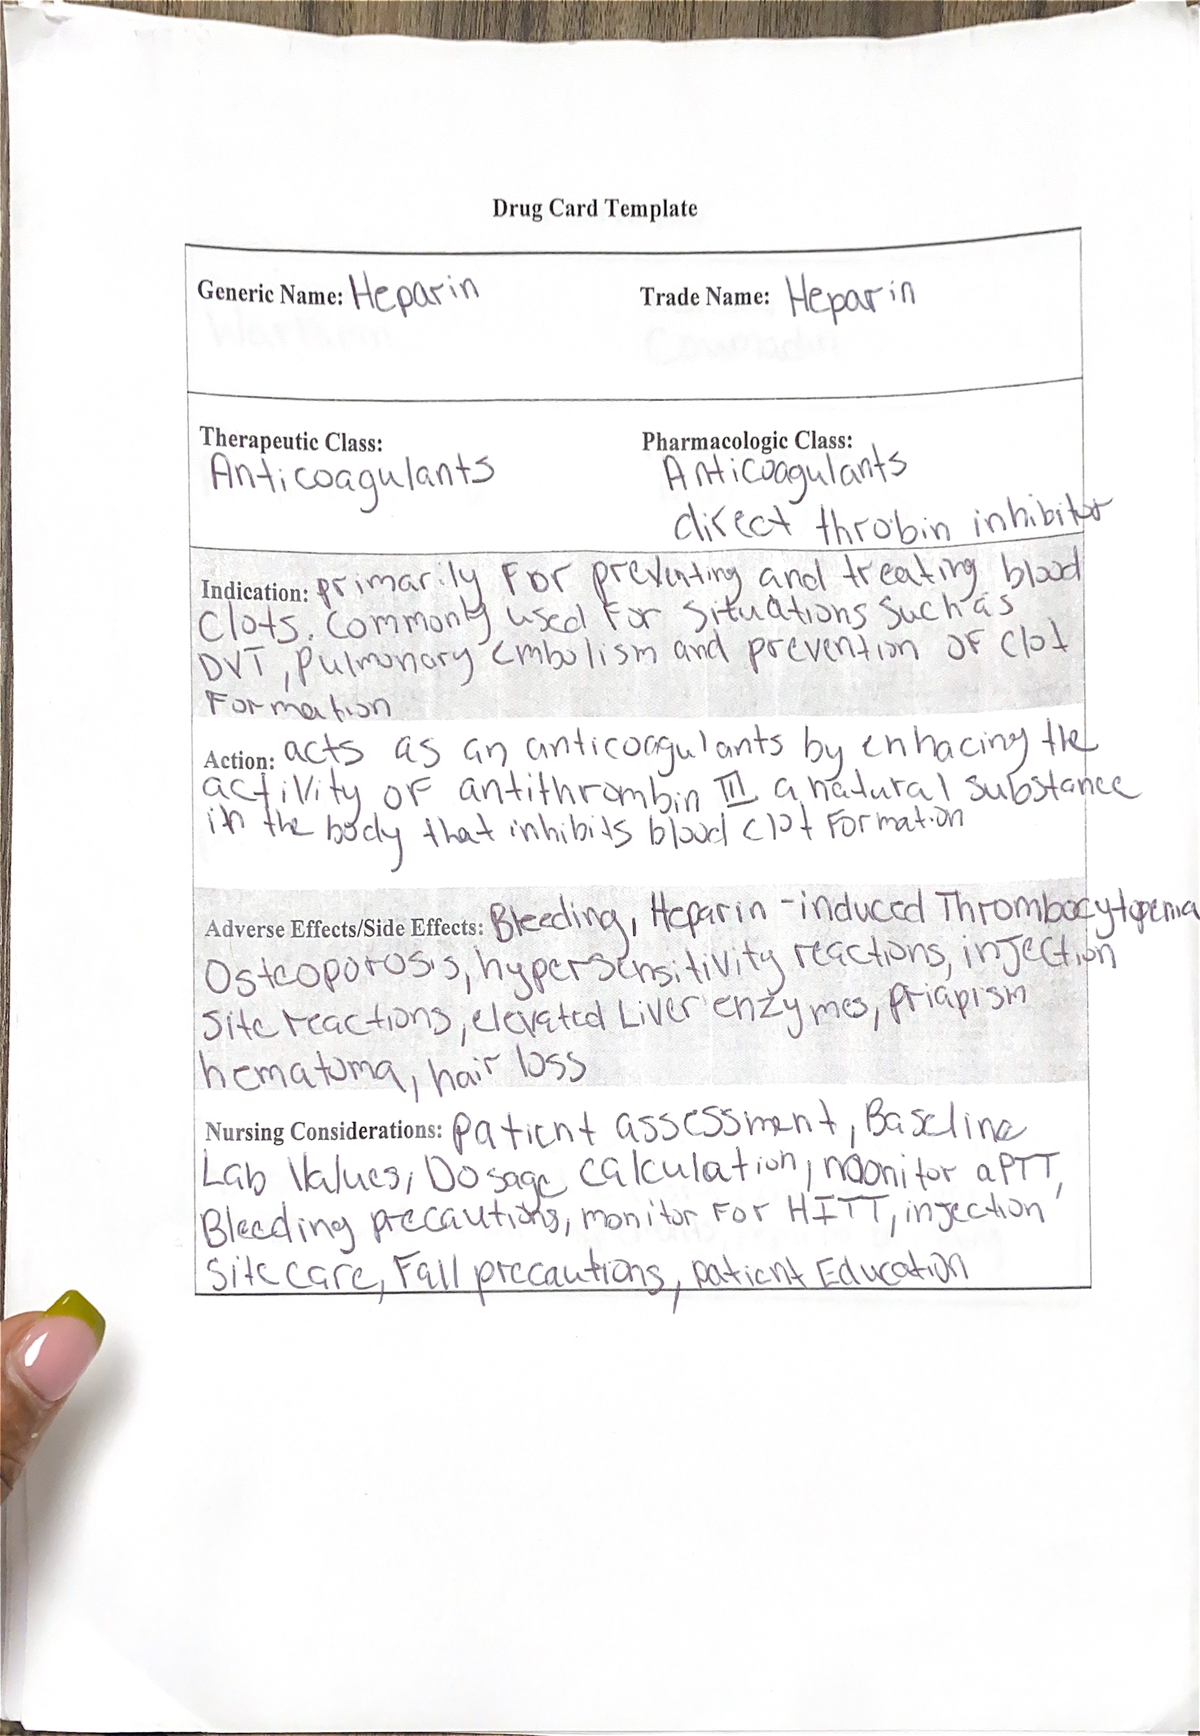 Drug Card Template
Generic Name: Heparin Trade Name: Heparin
Warfarin Coumadin
Therapeutic Class: Pharmacologic Class:
Anticoagulants Anticoagulants
direct throbin inhibitor
Indication: primarily For preventing and treating blood
Clots. Commonly used For situations such as
DVT, Pulmonary Embolism and prevention OF Clot
Formation
Action: acts as an anticoagulants by enhacing the
activity OF antithrombin III a natural substance
in the body that inhibits blood clot Formation
Adverse Effects/Side Effects: Bleeding, Heparin-induced Thrombocytopenia
Osteoporosis, hypersensitivity reactions, injection
site reactions, elevated Liver enzymes, priapism
hematoma, hair loss
Nursing Considerations: patient assessment, Baseline
Lab Values, Dosage calculation, monitor aPTT,
Bleeding precautions, monitor For HITT, injection
Site care, Fall precautions, patient Education